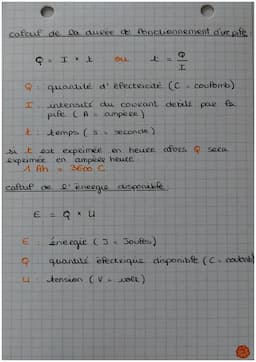 calcul de la durée de fonctionnement d'une pile
Q = I × t ou t = Q / I
Q : quantité d'électricité (C = coulomb)
I : intensité du courant débité par la
pile (A = ampère)
t : temps (s = seconde)
si t est exprimée en heure alors Q sera
exprimée en ampère heure
1 Ah = 3600 C
calcul de l'énergie disponible
E = Q × U
E : énergie (J = Joules)
Q : quantité électrique disponible (C = coulomb)
U : tension (V = volt)